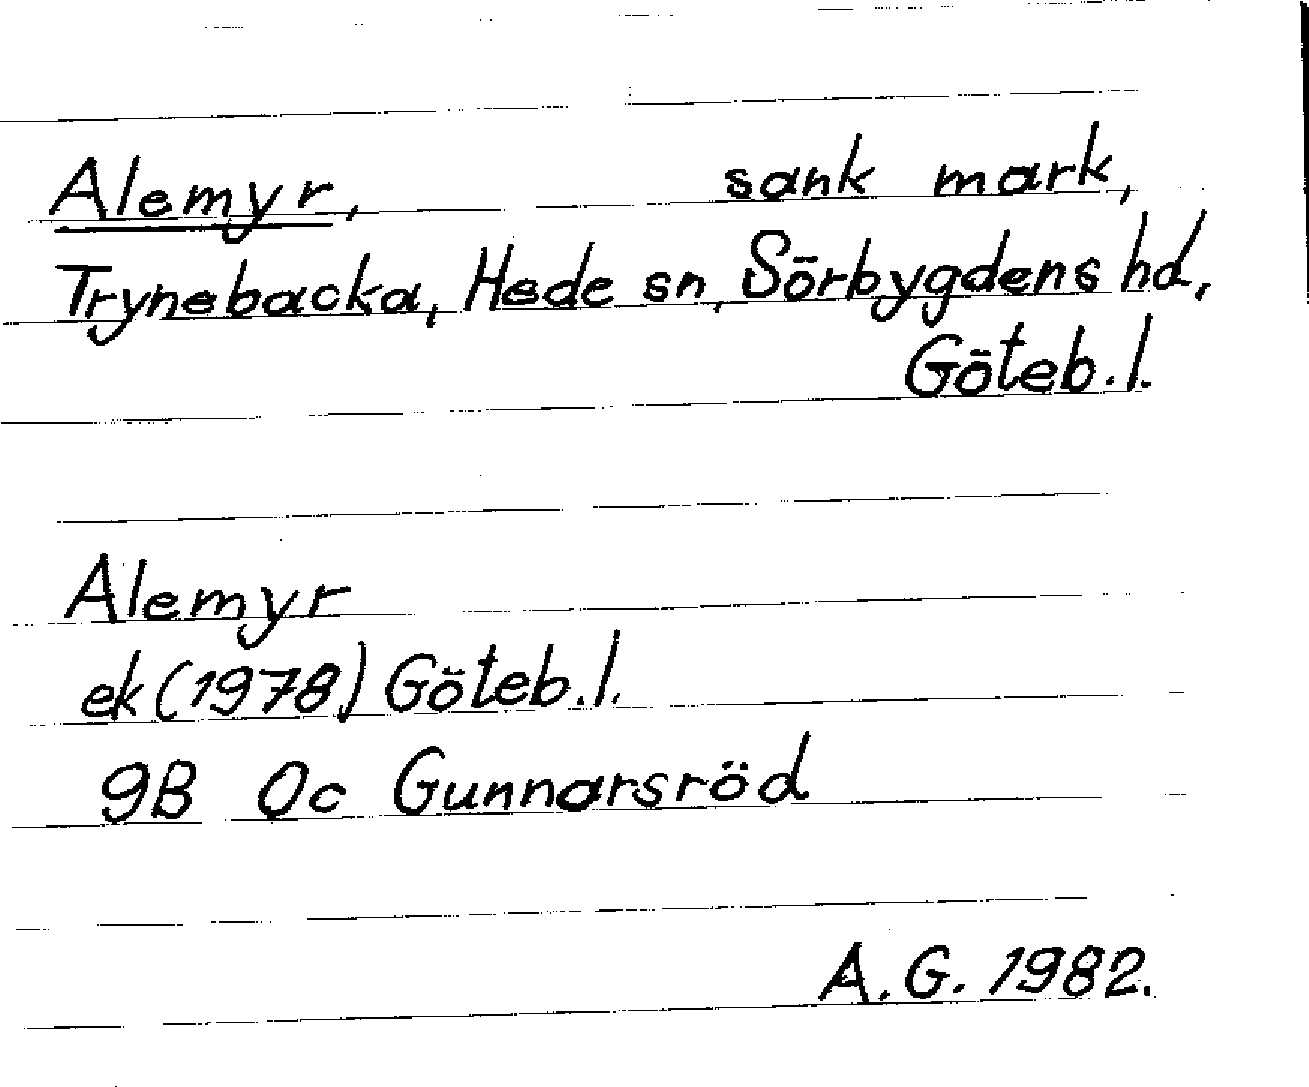 Alemyr, sank mark,
Trynebacka, Hede sn, Sörbygdens hd,
Göteb. l.
Alemyr
ek (1978) Göteb. l.
9B 0c Gunnarsröd
A. G. 1982.